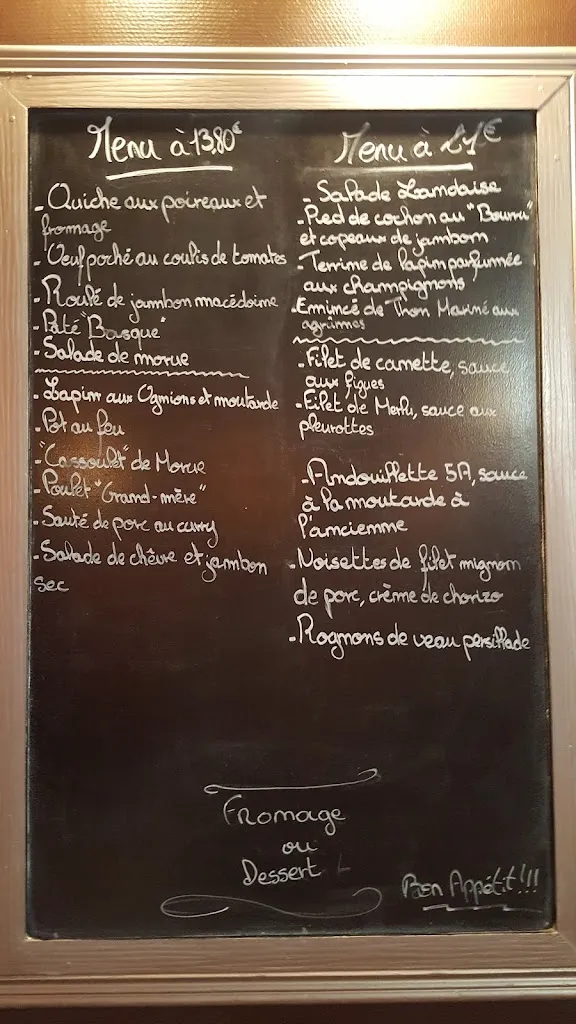 Menu à 13,80€
- Quiche aux poireaux et
fromage
- Oeuf poché au coulis de tomates
- Roulé de jambon macédoine
- Pâté "Basque"
- Salade de morue
- Lapin aux Ognions et moutarde
- Pot au feu
- "Cassoulet" de Morue
- Poulet "Grand-mère"
- Sauté de porc au curry
- Salade de chèvre et jambon
sec
Menu à 21€
- Salade Landaise
- Pied de cochon au "Bourru"
et copeaux de jambon
- Terrine de lapin parfumée
aux champignons
- Emincé de Thon Mariné aux
agrumes
- Filet de canette, sauce
aux figues
- Filet de Merlu, sauce aux
pleurottes
- Andouillette 5A, sauce
à la moutarde à
l'ancienne
- Noisettes de filet mignon
de porc, crème de chorizo
- Rognons de veau persillade
Fromage
ou
Dessert
Bon Appétit!!!